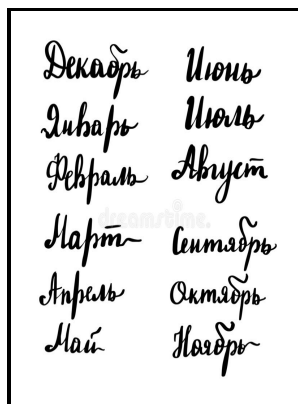 Декабрь
Январь
Февраль
Март
Апрель
Май
Июнь
Июль
Август
Сентябрь
Октябрь
Ноябрь
dreamstime.